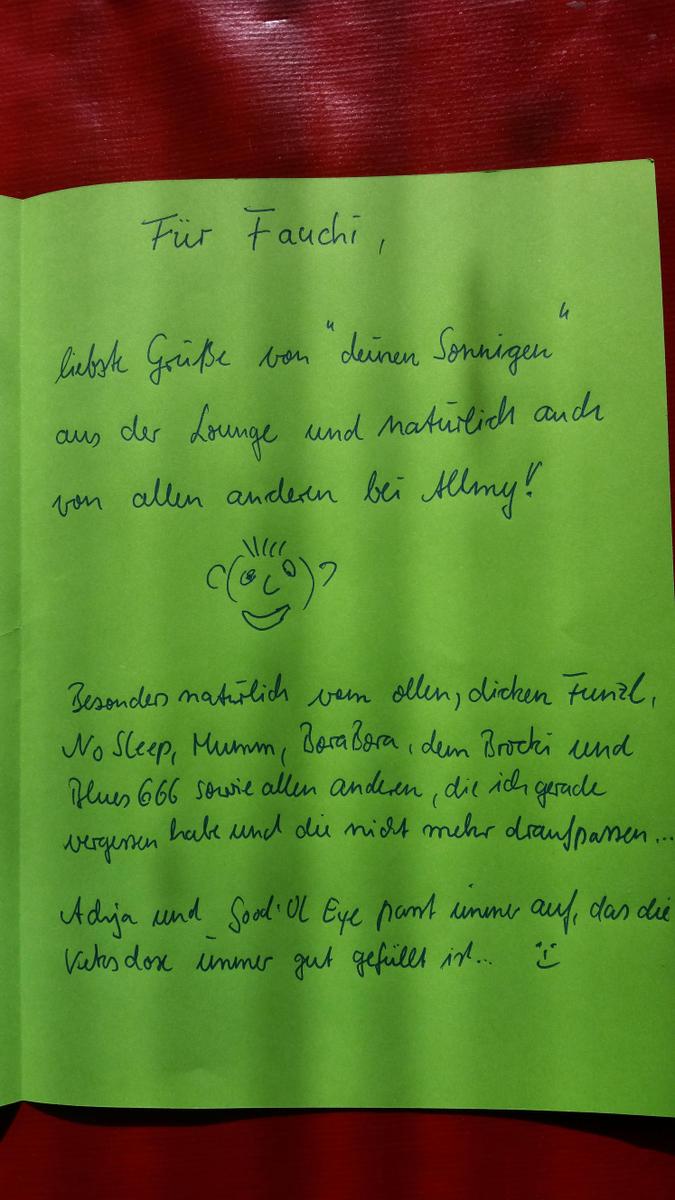 Für Fauchi,
liebste Grüße von "deinen Sonnigen"
aus der Lounge und natürlich auch
von allen anderen bei Allmy!
Besonders natürlich vom ollen, dicken Funzl,
No Sleep, Mumm, BoraBora, dem Brocki und
Blues666 sowie allen anderen, die ich gerade
vergessen habe und die nicht mehr draufpassen...
und Good'Ol Eye passt immer auf, das die
Keksdose immer gut gefüllt ist...